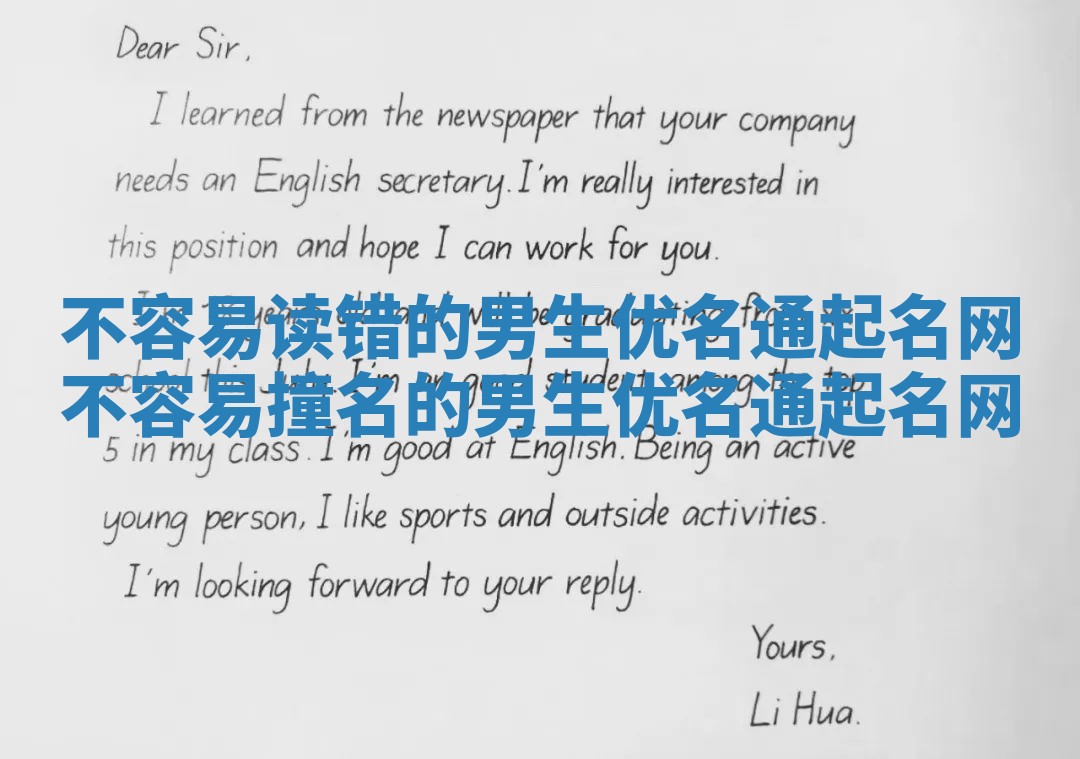 Dear Sir,
I learned from the newspaper that your company
needs an English secretary. I'm really interested in
this position and hope I can work for you.
不容易读错的男生优名通起名网
school this July. I'm an good student among the top
不容易撞名的男生优名通起名网
5 in my class. I'm good at English. Being an active
young person, I like sports and outside activities.
I'm looking forward to your reply.
Yours,
Li Hua.